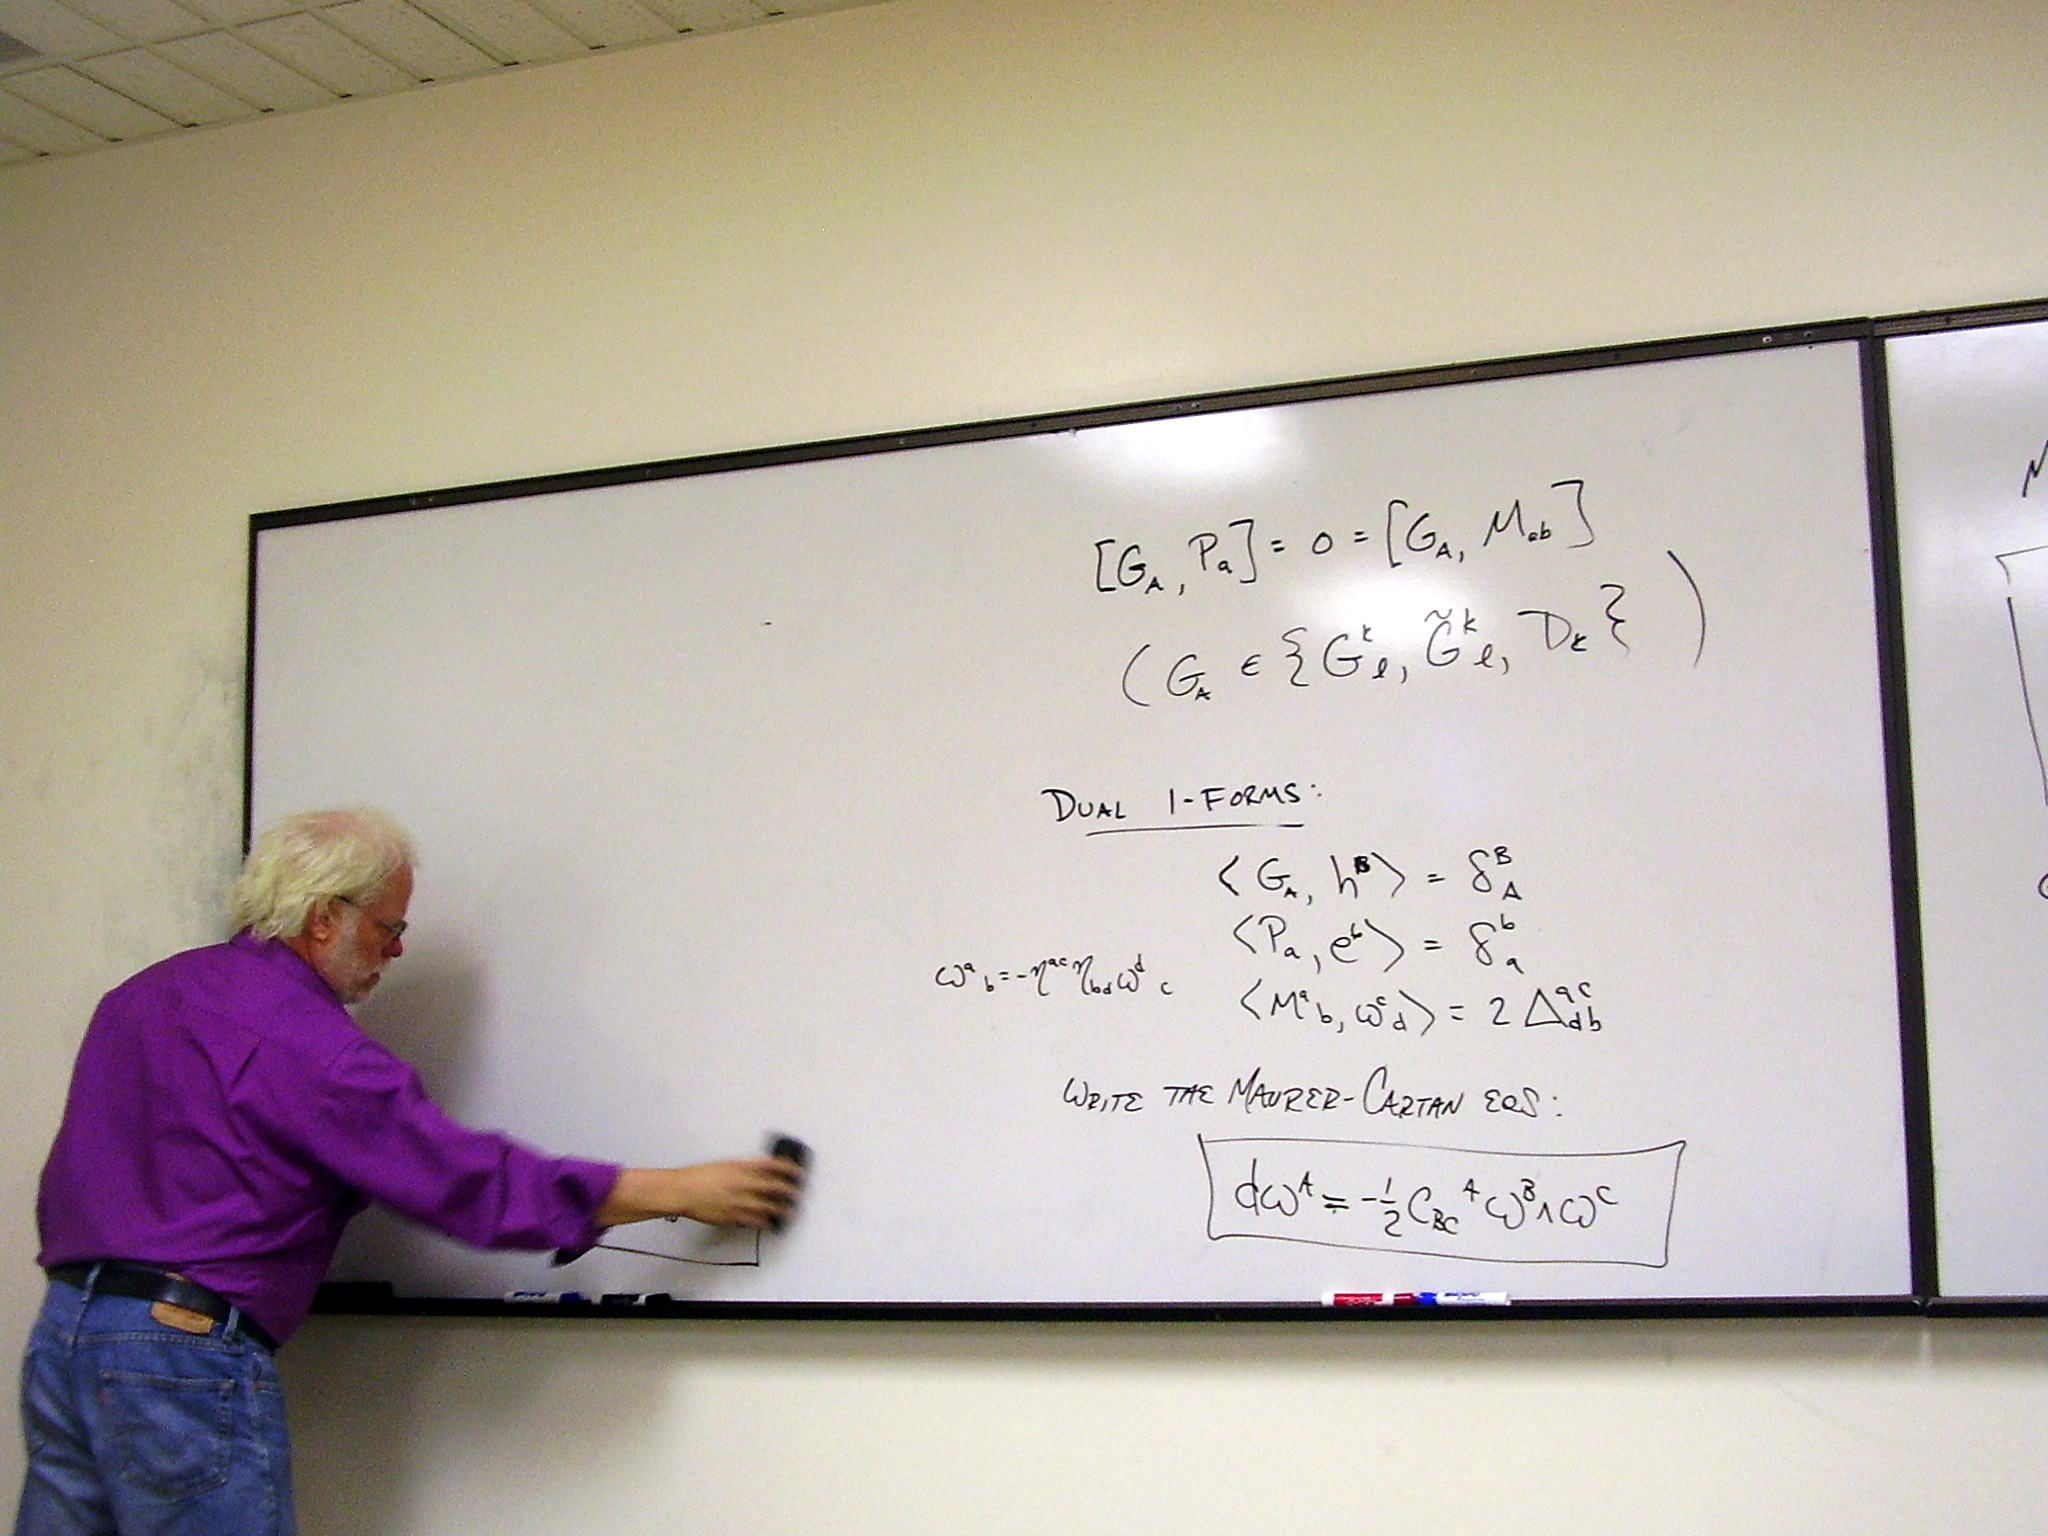 [G_A, P_a] = 0 = [G_A, M_ab]
(G_A ∈ {G^k_l, G̃^k_l, D_k})
DUAL 1-FORMS:
⟨G_A, h^B⟩ = δ^B_A
⟨P_a, e^b⟩ = δ^b_a
ω^a_b = -η^ac η_bd ω^d_c
⟨M^a_b, ω^c_d⟩ = 2 Δ^ac_db
WRITE THE MAURER-CARTAN EQS:
dω^A = -1/2 C_BC^A ω^B ∧ ω^C